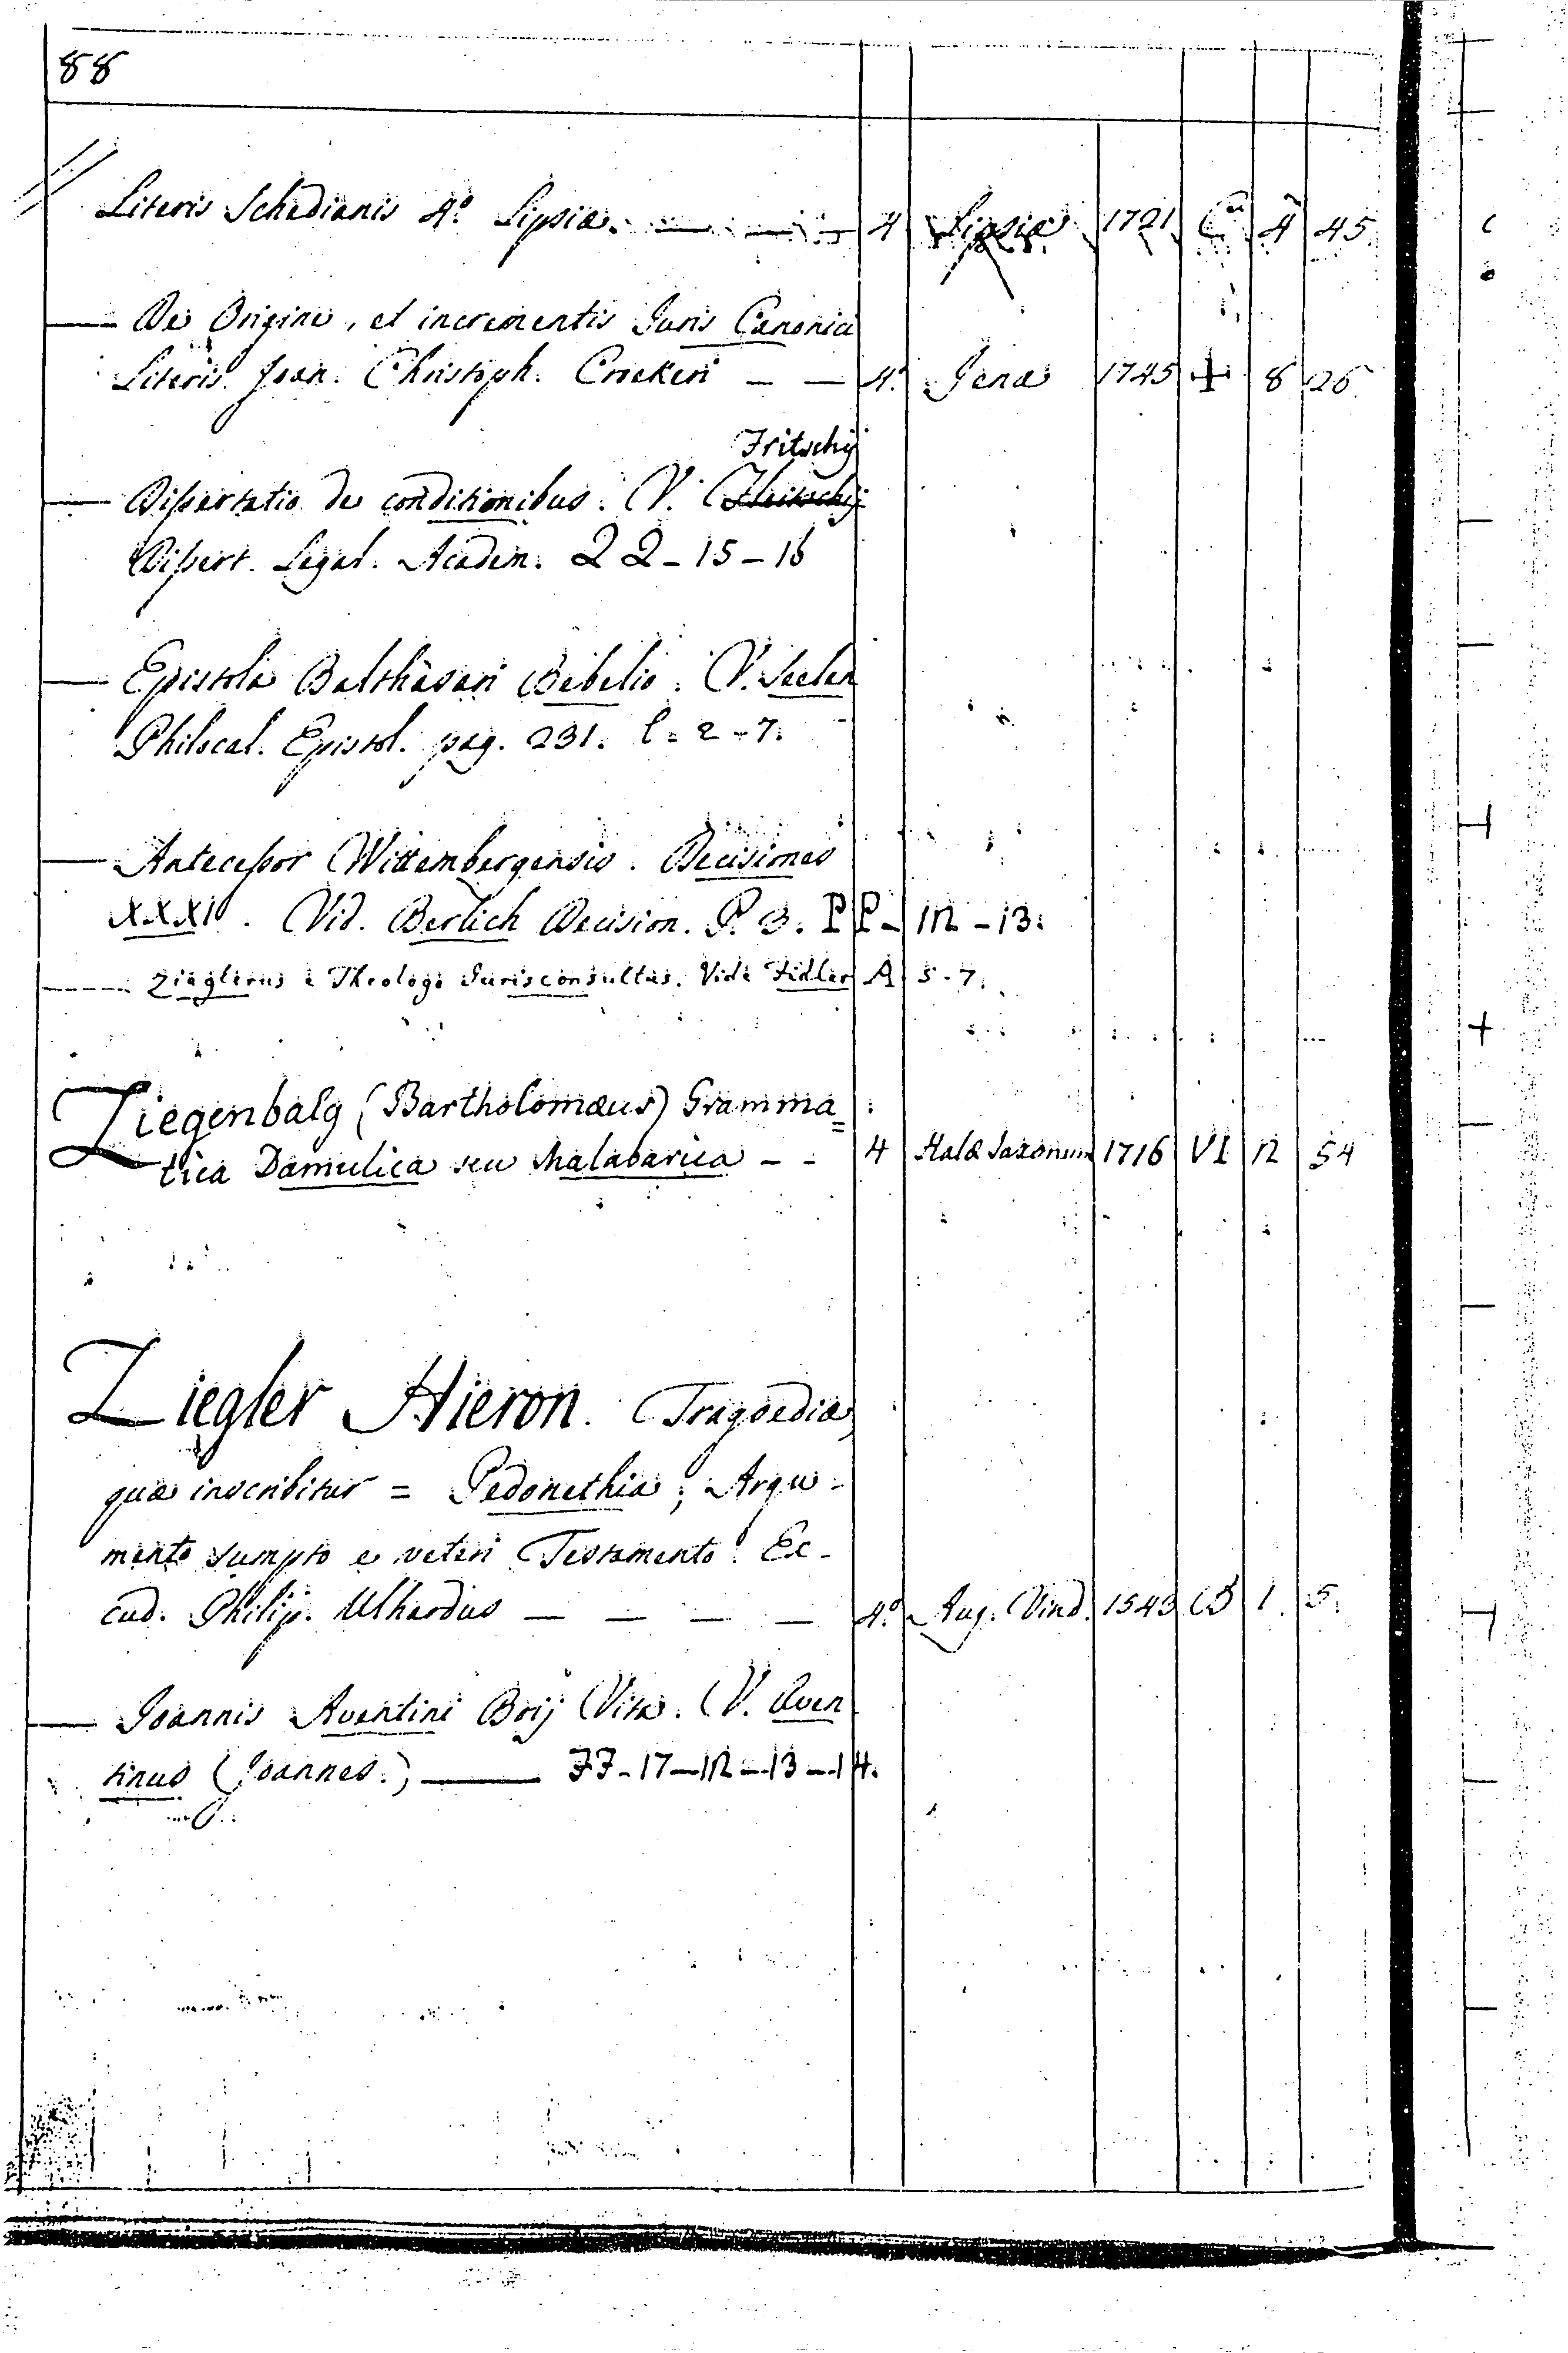 88
Literis Schedianis 4º Lipsiæ. — — 4 Lipsiæ 1721 4 45
— De Origine, et incrementis Juris Canonici
Literis Joan. Christoph. Crökeri — — 4. Jenæ 1745 + 8 26
Fritschij
— Dissertatio de conditionibus. V.
Dissert. Legal. Academ. 22-15-16
— Epistola Balthasari Bebelio. V. Seelen
Philocal. Epistol. pag. 231. l-2-7.
— Antecessor Wittembergensis. Decisiones
XXXI. Vid. Berlich Decision. P. 3. PP-12-13.
— Zieglerus e Theologo Jurisconsultus. Vide Fidler A 5-7.
Ziegenbalg (Bartholomæus) Gramma=
tica Damulica seu Malabarica - - 4 Halæ Saxonum 1716 VI 12 54
Ziegler Hieron. Tragoedia
quæ inscribitur = Pedonethia; Argu-
mento sumpto e veteri Testamento. Ex-
cud. Philip. Ulhardus — — — — 4º Aug. Vind. 1543 B 1. 5.
— Joannis Aventini Boij Vita. V. Aven
tinus (Joannes.) — 77-17-12-13-14.